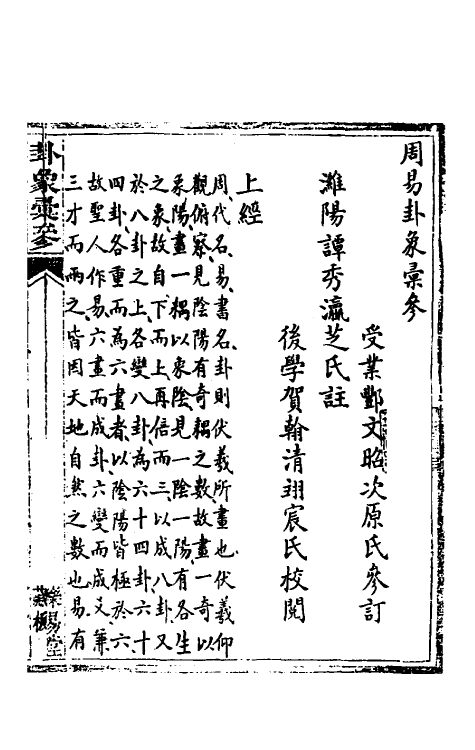 周易卦象彙參
受業酆文昭次原氏參訂
濰陽譚秀瀛芝氏註
後學賀翰清翊宸氏校閱
上經
周代名易書名卦則伏羲所畫也伏羲仰
觀俯察見陰陽有奇耦之數故畫一奇以
象陽畫一耦以象陰見一陰一陽有各生
之象故自下而上再倍而三以成八卦又
於八卦之上各變八卦為六十四卦六十
四卦各重而為六畫者以陰陽皆極於六
故聖人作易六畫而成卦六變而成爻兼
三才而兩之皆因天地自然之數也易有
卦象彙參
樂易堂
藏板